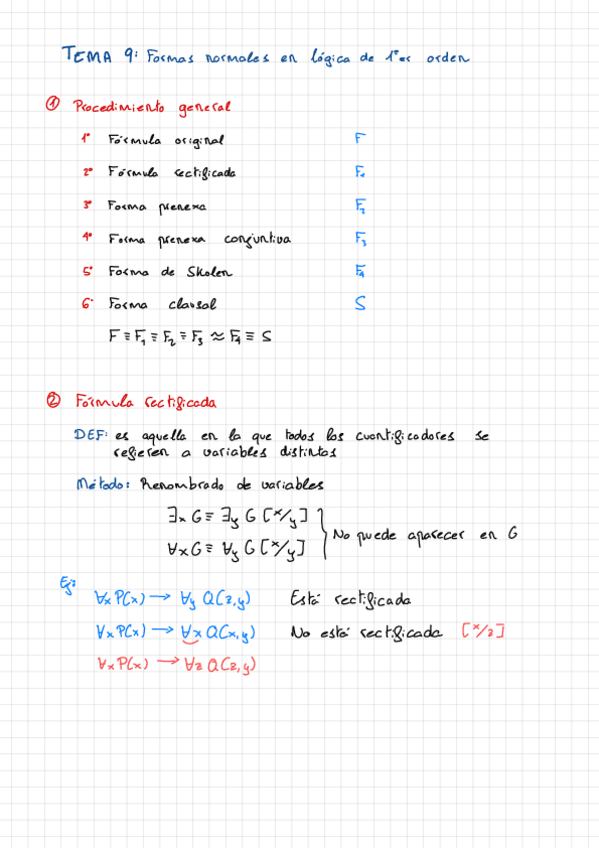 TEMA 9: Formas normales en lógica de 1er orden
① Procedimiento general
1º Fórmula original F
2º Fórmula rectificada F₁
3º Forma prenexa F₂
4º Forma prenexa conjuntiva F₃
5º Forma de Skolen F₄
6º Forma clausal S
F ≡ F₁ ≡ F₂ ≡ F₃ ≈ F₄ ≡ S
② Fórmula rectificada
DEF: es aquella en la que todos los cuantificadores se
refieren a variables distintas
Método: Renombrado de variables
∃x G ≡ ∃y G [x/y]
∀x G ≡ ∀y G [x/y] } No puede aparecer en G
Ej:
∀x P(x) → ∀y Q(z,y) Está rectificada
∀x P(x) → ∀x Q(x,y) No está rectificada [x/z]
∀x P(x) → ∀z Q(z,y)